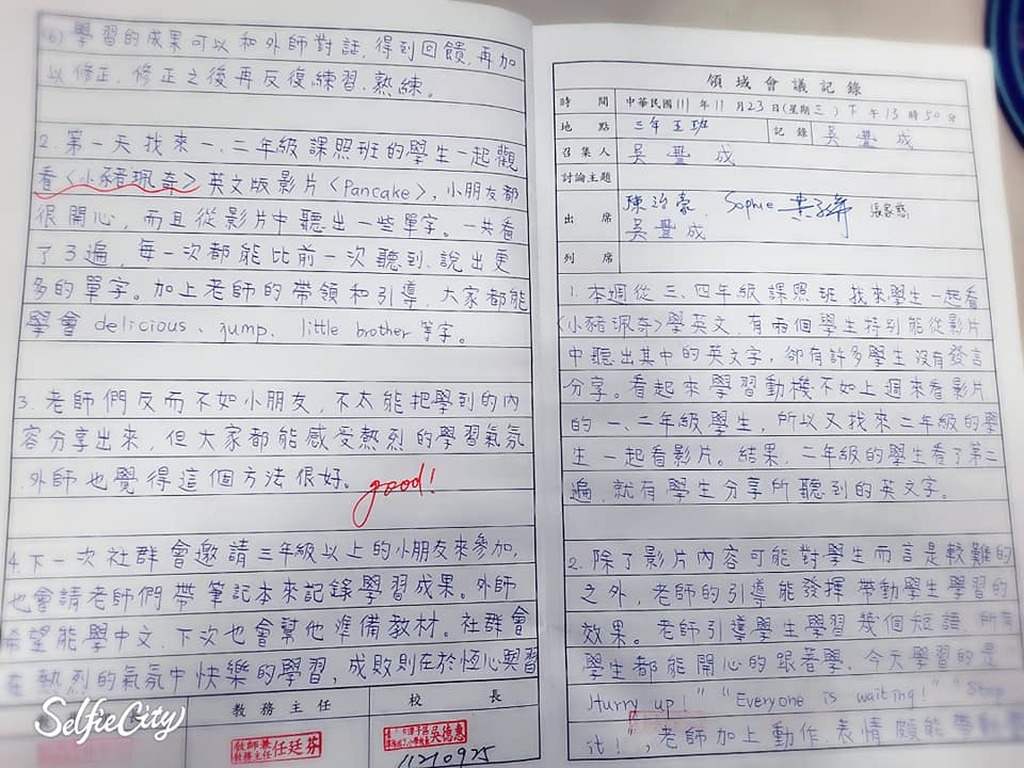 (6) 學習的成果可以和外師對話,得到回饋,再加
以修正,修正之後再反復練習.熟練。
2. 第一天找來一、二年級課照班的學生一起觀
看〈小豬珮奇〉英文版影片〈Pancake〉,小朋友都
很開心,而且從影片中聽出一些單字。一共看
了3遍,每一次都能比前一次聽到、說出更
多的單字。加上老師的帶領和引導,大家都能
學會 delicious、jump、little brother 等字。
3. 老師們反而不如小朋友,不太能把學到的內
容分享出來,但大家都能感受熱烈的學習氣氛
.外師也覺得這個方法很好。 good!
4.下一次社群會邀請三年級以上的小朋友來參加,
也會請老師們帶筆記本來記錄學習成果。外師
希望能學中文,下次也會幫他準備教材。社群會
在熱烈的氣氛中快樂的學習,成敗則在於恆心與習
教務主任 校長
教師兼
教務主任 任廷芬
吳德惠
1120925
SelfieCity
領域會議記錄
時間 中華民國111年11月23日(星期三)下午13時50分
地點 三年五班 記錄 吳豐成
召集人 吳豐成
討論主題
出席 陳治豪、Sophie
吳豐成
列席
1. 本週從三、四年級課照班找來學生一起看
〈小豬珮奇〉學英文,有兩個學生特別能從影片
中聽出其中的英文字,卻有許多學生沒有發言
分享。看起來學習動機不如上週來看影片
的一、二年級學生,所以又找來二年級的學
生一起看影片。結果,二年級的學生看了第二
遍,就有學生分享所聽到的英文字。
2. 除了影片內容可能對學生而言是較難的
之外,老師的引導能發揮帶動學生學習的
效果。老師引導學生學習幾個短語,所有
學生都能開心的跟著學,今天學習的是
"Hurry up!" "Everyone is waiting!" "Stop
it!",老師加上動作、表情頗能帶動